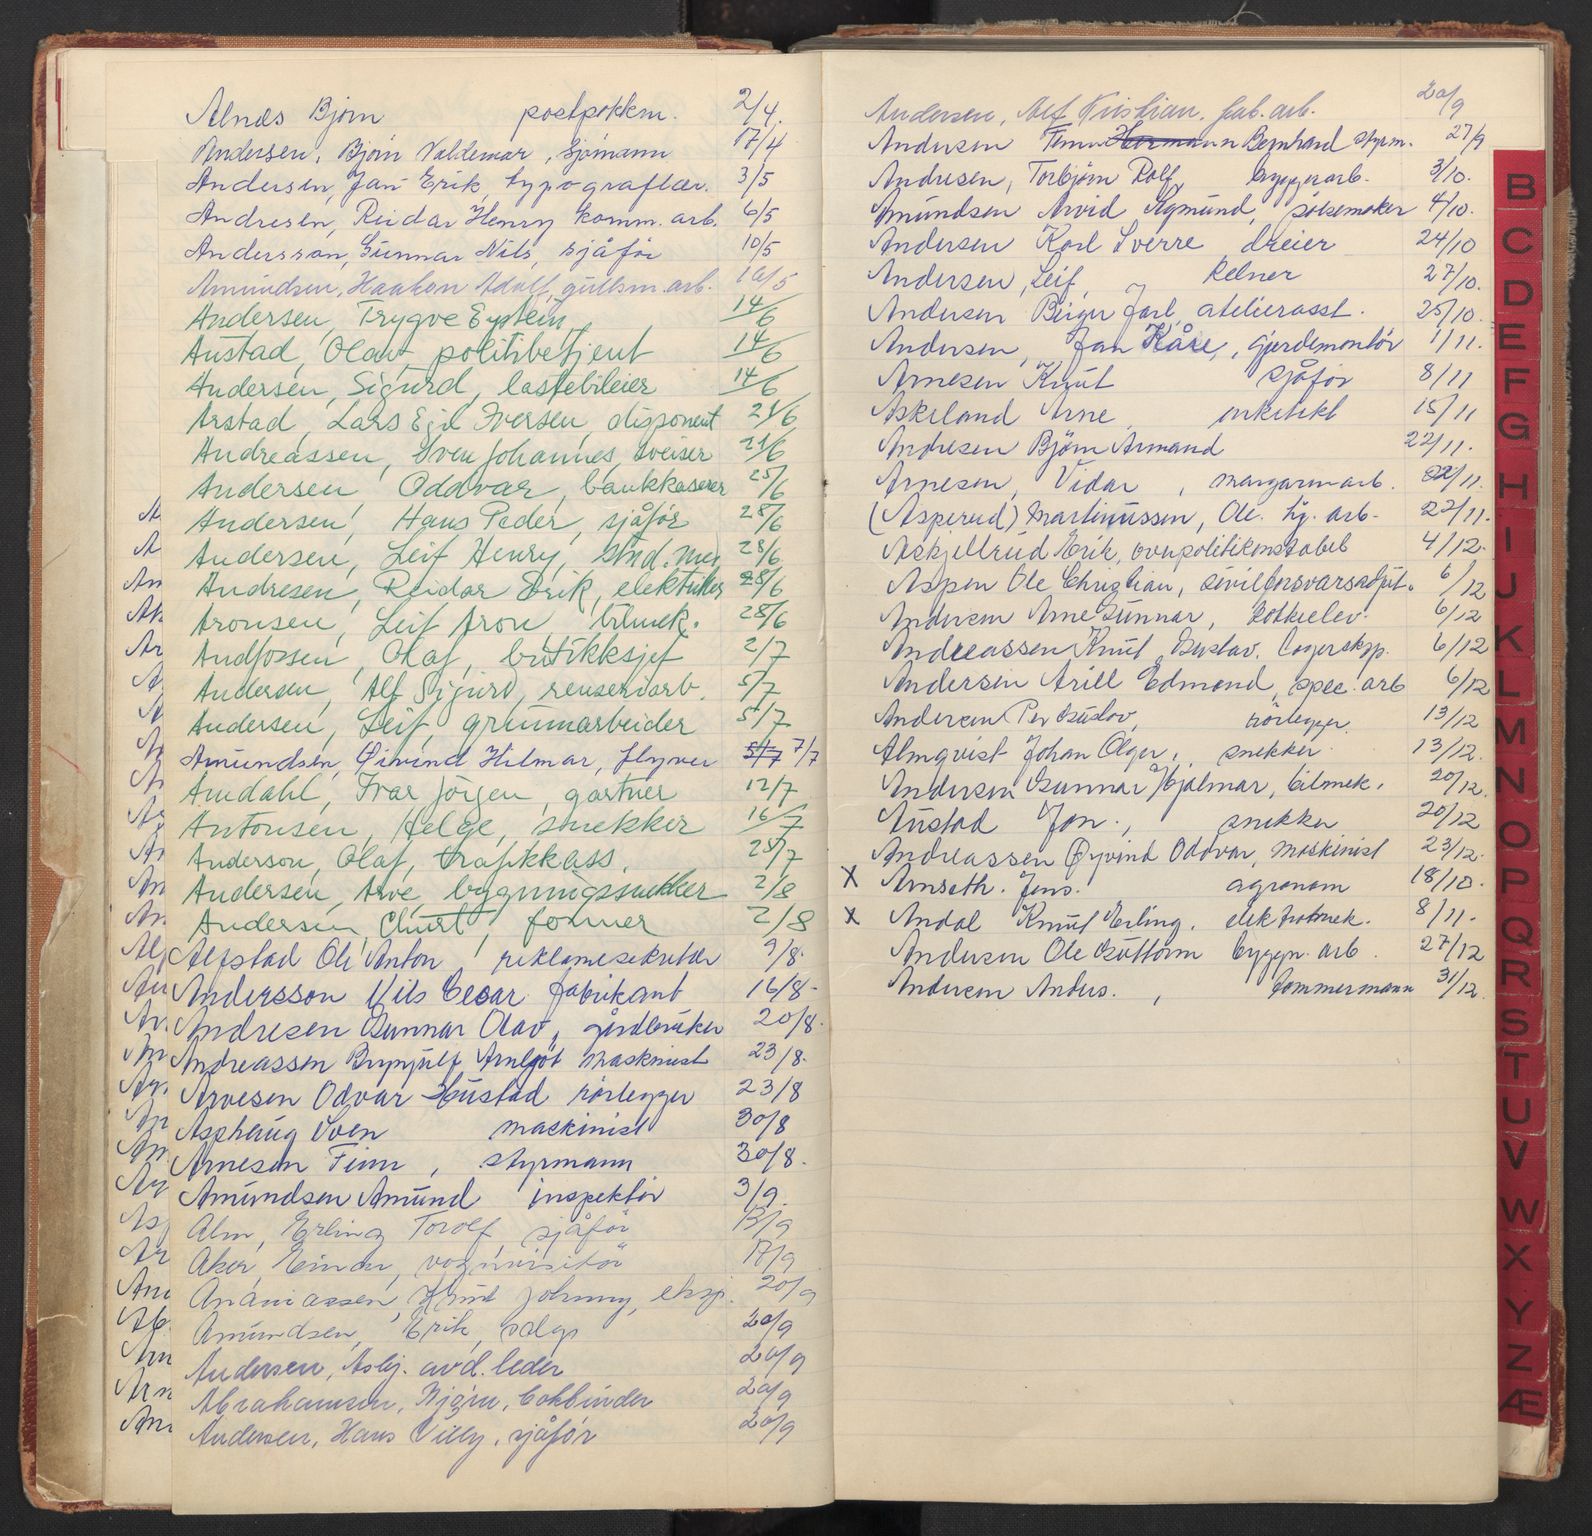 Alnæs Bjørn postpakkm. 2/4.
Andersen, Bjørn Valdemar, sjømann 17/4
Andersen, Jan Erik, typograflær. 3/5
Andresen, Reidar Henry komm. arb. 6/5
Andersson, Gunnar Nils, sjåfør 10/5
Amundsen, Haakon Adolf, gullsm. arb. 10/5
Andersen, Trygve Eystein, 14/6
Austad, Olav politibetjent 14/6
Andersen, Sigurd, lastebileier 14/6
Arstad, Lars Egil Iversen, disponent 21/6
Andreassen, Sven Johannes, sveiser 21/6
Andersen, Oddvar, bankkasserer 25/6
Andersen, Hans Peder, sjåfør 28/6
Andersen, Leif Henry, stud. med 28/6
Andresen, Reidar Erik, elektriker 28/6
Aronsen, Leif Aron bilmek. 28/6
Andfossen, Olaf, butikksjef 2/7
Andersen, Alf Sigurd, renseriarb. 5/7
Andersen, Leif, grunnarbeider 5/7
Amundsen, Øivind Hilmar, flyver 5/7 7/7
Amdahl, Ivar Jörgen, gartner 12/7
Antonsen, Helge, snekker 16/7
Anderson, Olaf, trafikkass. 25/7
Andersen, Arve, bygningssnekker 2/8
Andersen, Churt, former 2/8
Alfstad Ole Anton, reklamesekretær 9/8.
Andersson Nils Cesar fabrikant 16/8-
Andresen Gunnar Olav, gårdbruker 20/8.
Andreassen Brynjulf Arnljot maskinist 23/8.
Arvesen Odvar Hustad rörlegger 23/8
Asphaug Sven maskinist 30/8
Arnesen Finn, styrmann 30/8.
Amundsen Amund inspektör 3/9.
Alm, Erling Torolf, sjåfør 13/9
Aker, Einar, vognvisitör 17/9
Ananiassen, Knut Johnny, eksp. 20/9
Amundsen, Erik, selgs 20/9
Andersen, Asbj. avd. leder 20/9
Abrahamsen, Bjørn, bokbinder 20/9
Andersen, Hans Villy, sjåfør 20/9
Andersen, Alf Kristian. fab. arb. 20/9
Andersen Finn Hermann Bernhard styrm. 27/9
Andresen, Torbjørn Rolf, byggearb. 3/10.
Amundsen Arvid Agmund, pölsemaker 4/10.
Andersen Karl Sverre dreier 24/10
Andersen, Leif, kelner 27/10.
Andersen Birger Jarl, atelierasst. 25/10.
Andersen, Jan Kåre, gjerdemontör 1/11.
Arnesen Knut sjåfør 8/11
Askeland Arne, arkitekt 15/11
Andresen Bjørn Armand 22/11.
Arnesen, Vidar, margarinarb. 22/11.
(Asperud) Martinussen, Ole. by. arb. 22/11.
Askjellrud Erik, overpolitikonstabel 4/12.
Aspen Ole Christian, sivilforsvarsadjut. 6/12
Andersen Arne Gunnar, kokkelev. 6/12
Andreassen Knut Gustav. lagereksp. 6/12
Andersen Arill Edmond, spec. arb 6/12
Andersen Per Gustav, rörlegger 13/12
Almqvist Johan Olger, snekker 13/12.
Andersen Gunnar Hjalmar, bilmek. 20/12.
Austad Jon., snekker 20/12
Andreassen Øyvind Oddvar, maskinist 23/12.
X Amseth. Jens. agronom 18/10.
X Andal Knut Erling. elektromek. 8/11.
Andersen Ole Guttorm byggn. arb. 27/12
Andersen Anders., tømmermann 31/12.
B
C
D
E
F
G
H
I
J
K
L
M
N
O
P
Q
R
S
T
U
V
W
X
Y
Z
Æ